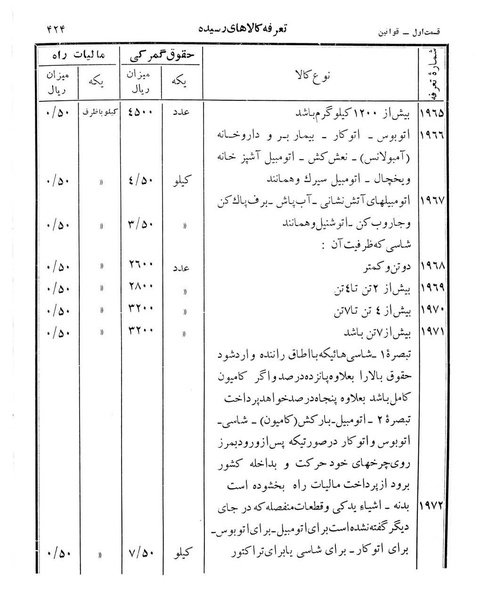 قسمت اول ـ قوانین تعرفه کالاهای رسیده ۴۲۴
شمارهٔ تعرفه نوع کالا حقوق گمرکی مالیات راه
یکه میزان ریال یکه میزان ریال
۱۹۶۵ بیش از ۱۲۰۰ کیلوگرم باشد عدد ۴۵۰۰ کیلو باظرف ۰/۵۰
۱۹۶۶ اتوبوس ـ اتوکار ـ بیمار بر و داروخانه
(آمبولانس) ـ نعش کش ـ اتومبیل آشپز خانه
ویخچال ـ اتومبیل سیرک وهمانند کیلو ۴/۵۰ » ۰/۵۰
۱۹۶۷ اتومبیلهای آتش نشانی ـ آب پاش ـ برف پاک کن
وجاروب کن ـ اتوشنیل وهمانند » ۳/۵۰ » ۰/۵۰
شاسی که ظرفیت آن :
۱۹۶۸ دوتن وکمتر عدد ۲۶۰۰ » ۰/۵۰
۱۹۶۹ بیش از ۲تن تا۴تن » ۲۸۰۰ » ۰/۵۰
۱۹۷۰ بیش از ۴ تن تا۷تن » ۳۲۰۰ » ۰/۵۰
۱۹۷۱ بیش از۷تن باشد » ۳۲۰۰ » ۰/۵۰
تبصرهٔ ۱ ـ شاسی هائیکه بااطاق راننده واردشود
حقوق بالارا بعلاوه پانزده درصد واگر کامیون
کامل باشد بعلاوه پنجاه درصد خواهد پرداخت
تبصرهٔ ۲ ـ اتومبیل ـ بارکش (کامیون) ـ شاسی ـ
اتوبوس واتوکار درصورتیکه پس از ورود بمرز
روی چرخهای خود حرکت و بداخله کشور
برود از پرداخت مالیات راه بخشوده است
۱۹۷۲ بدنه ـ اشیاء یدکی وقطعات منفصله که در جای
دیگر گفته نشده است برای اتومبیل ـ برای اتوبوس ـ
برای اتوکار ـ برای شاسی یا برای تراکتور کیلو ۷/۵۰ » ۰/۵۰